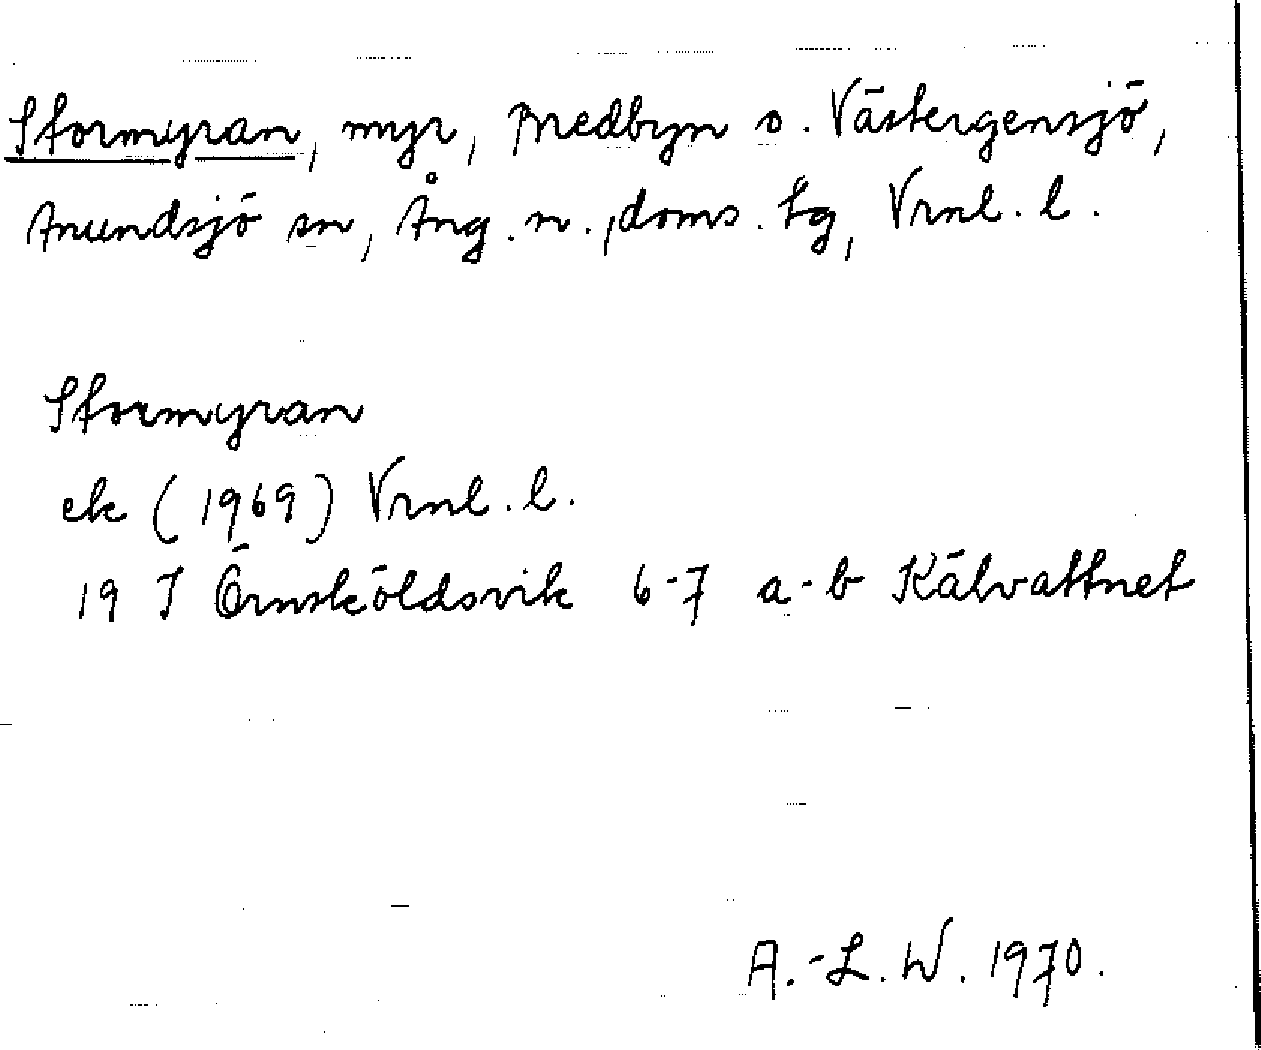 Stormyran, myr, Medbyn o. Västergensjö,
Anundsjö sn, Ång. n., doms. tg, Vrnl. l.
Stormyran
ek (1969) Vrnl. l.
19 J Örnsköldsvik 6-7 a-b Kälvattnet
A.-L. W. 1970.